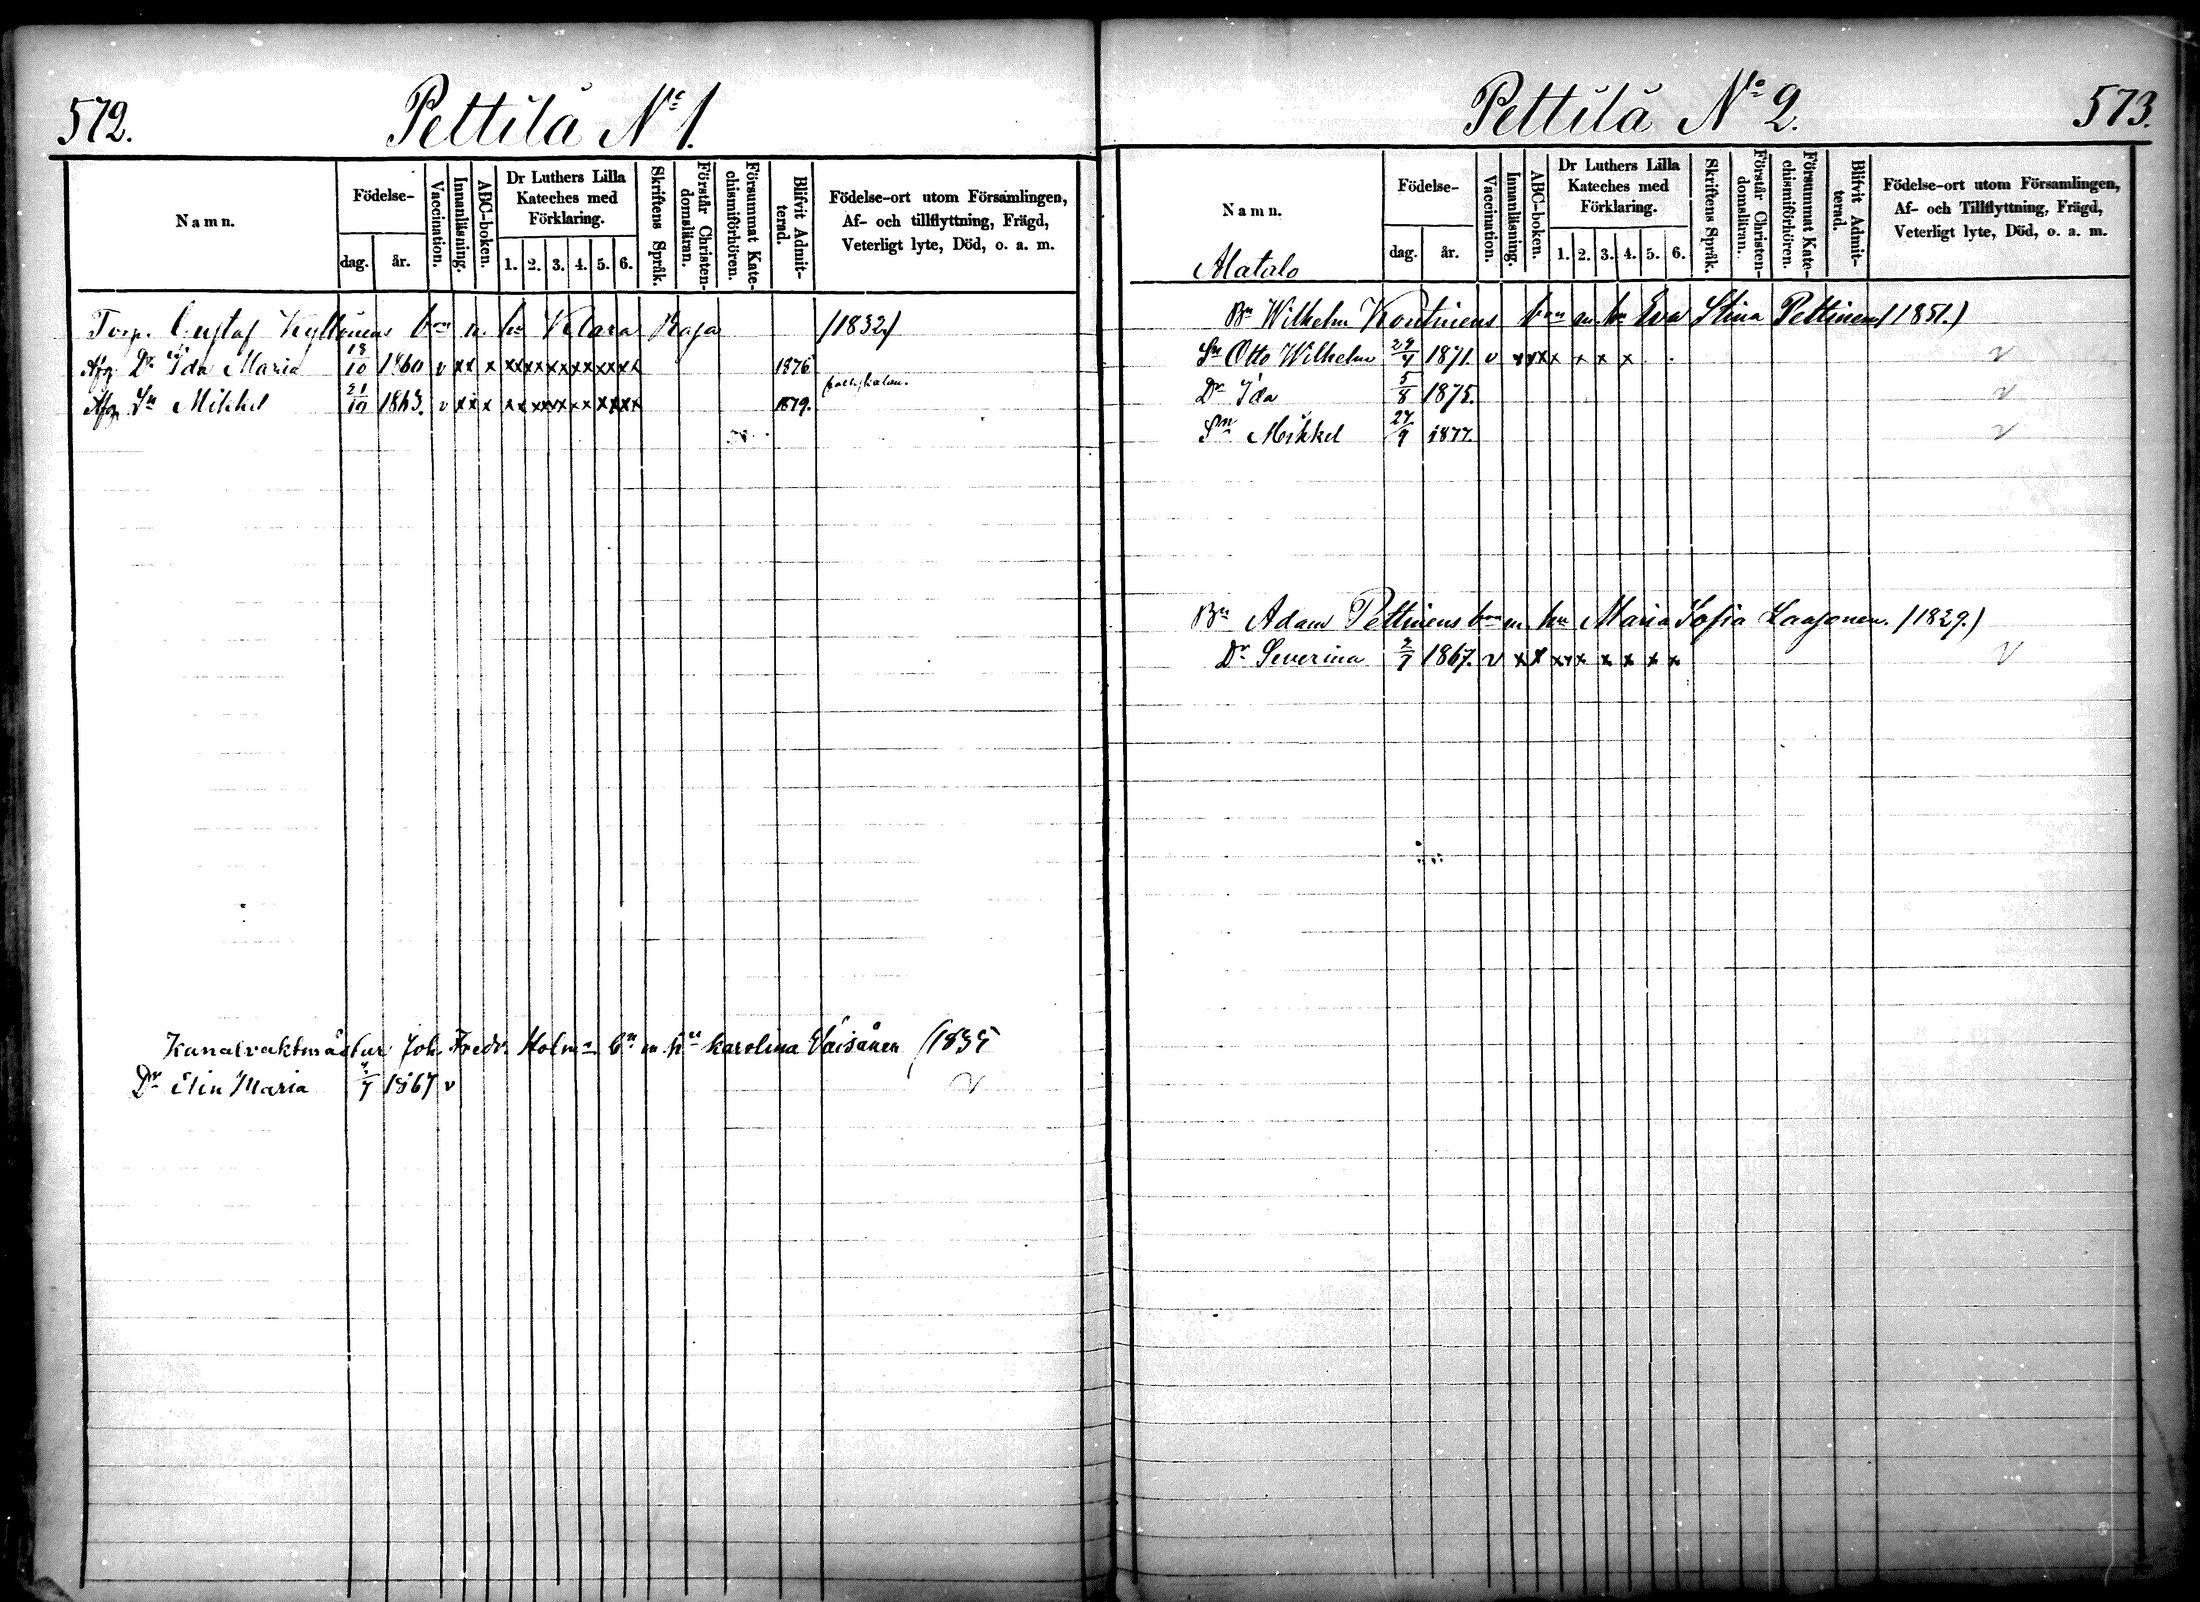 572.
Pettilä No 1.
Namn.
Födelse-
dag.
år.
Vaccination.
Innanläsning.
ABC-boken.
Dr Luthers Lilla
Kateches med
Förklaring.
1. 2. 3. 4. 5. 6.
Skriftens Språk.
Förstår Christen-
domsläran.
Försummat Kate-
chismiförhören.
Blifvit Admit-
terad.
Födelse-ort utom Församlingen,
Af- och tillflyttning, Frägd,
Veterligt lyte, Död, o. a. m.
Torp. Gustaf Kyllönens bn m. hu Klara Kaja (1832)
Afg. Dr Ida Maria 18/10 1860 v xx x xxxxxxxxxxxx 1876
Afg. Sn Mikkel 21/10 1863. v xx x xxxxxxxxxxxx 1879.
Kanalvaktmästar Joh. Fredr. Holm bn m hu Karolina Väisänen (1835
Dr Elin Maria 2/7 1867 v v
573.
Pettilä No 2.
Namn.
Födelse-
dag.
år.
Vaccination.
Innanläsning.
ABC-boken.
Dr Luthers Lilla
Kateches med
Förklaring.
1. 2. 3. 4. 5. 6.
Skriftens Språk.
Förstår Christen-
domsläran.
Försummat Kate-
chismiförhören.
Blifvit Admit-
terad.
Födelse-ort utom Församlingen,
Af- och Tillflyttning, Frägd,
Veterligt lyte, Död, o. a. m.
Matalo
Bn Wilhelm Kontinens bn m. hu Eva Stina Pettinen (1851.)
Sn Otto Wilhelm 29/4 1871. v xxxx x x x v
Dr Ida 5/8 1875. v
Sn Mikkel 27/9 1877. v
Bn Adam Pettinens bn m hu Maria Sofia Laasonen. (1829.)
Dr Severina 2/7 1867. v x x xxx x x x x v